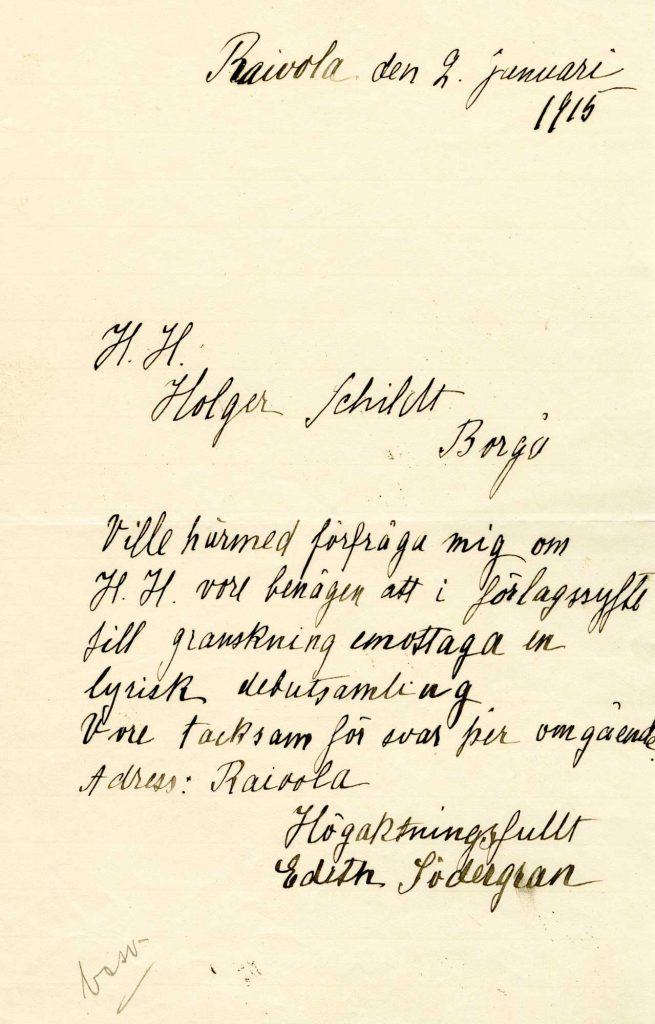 Raivola den 2. januari
1915
H. H.
Holger Schildt
Borgå
Ville härmed förfråga mig om
H. H. vore benägen att i förlagssyfte
till granskning emottaga en
lyrisk debutsamling
Vore tacksam för svar per omgående.
Adress: Raivola
Högaktningsfullt
Edith Södergran